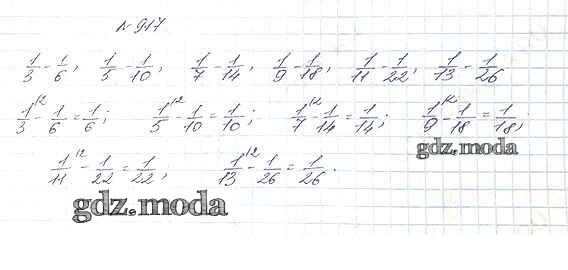 №917
1/3 - 1/6, 1/5 - 1/10, 1/7 - 1/14, 1/9 - 1/18, 1/11 - 1/22, 1/13 - 1/26
1/3 \2 - 1/6 = 1/6; 1/5 \2 - 1/10 = 1/10; 1/7 \2 - 1/14 = 1/14; 1/9 \2 - 1/18 = 1/18;
gdz.moda
1/11 \2 - 1/22 = 1/22; 1/13 \2 - 1/26 = 1/26.
gdz.moda